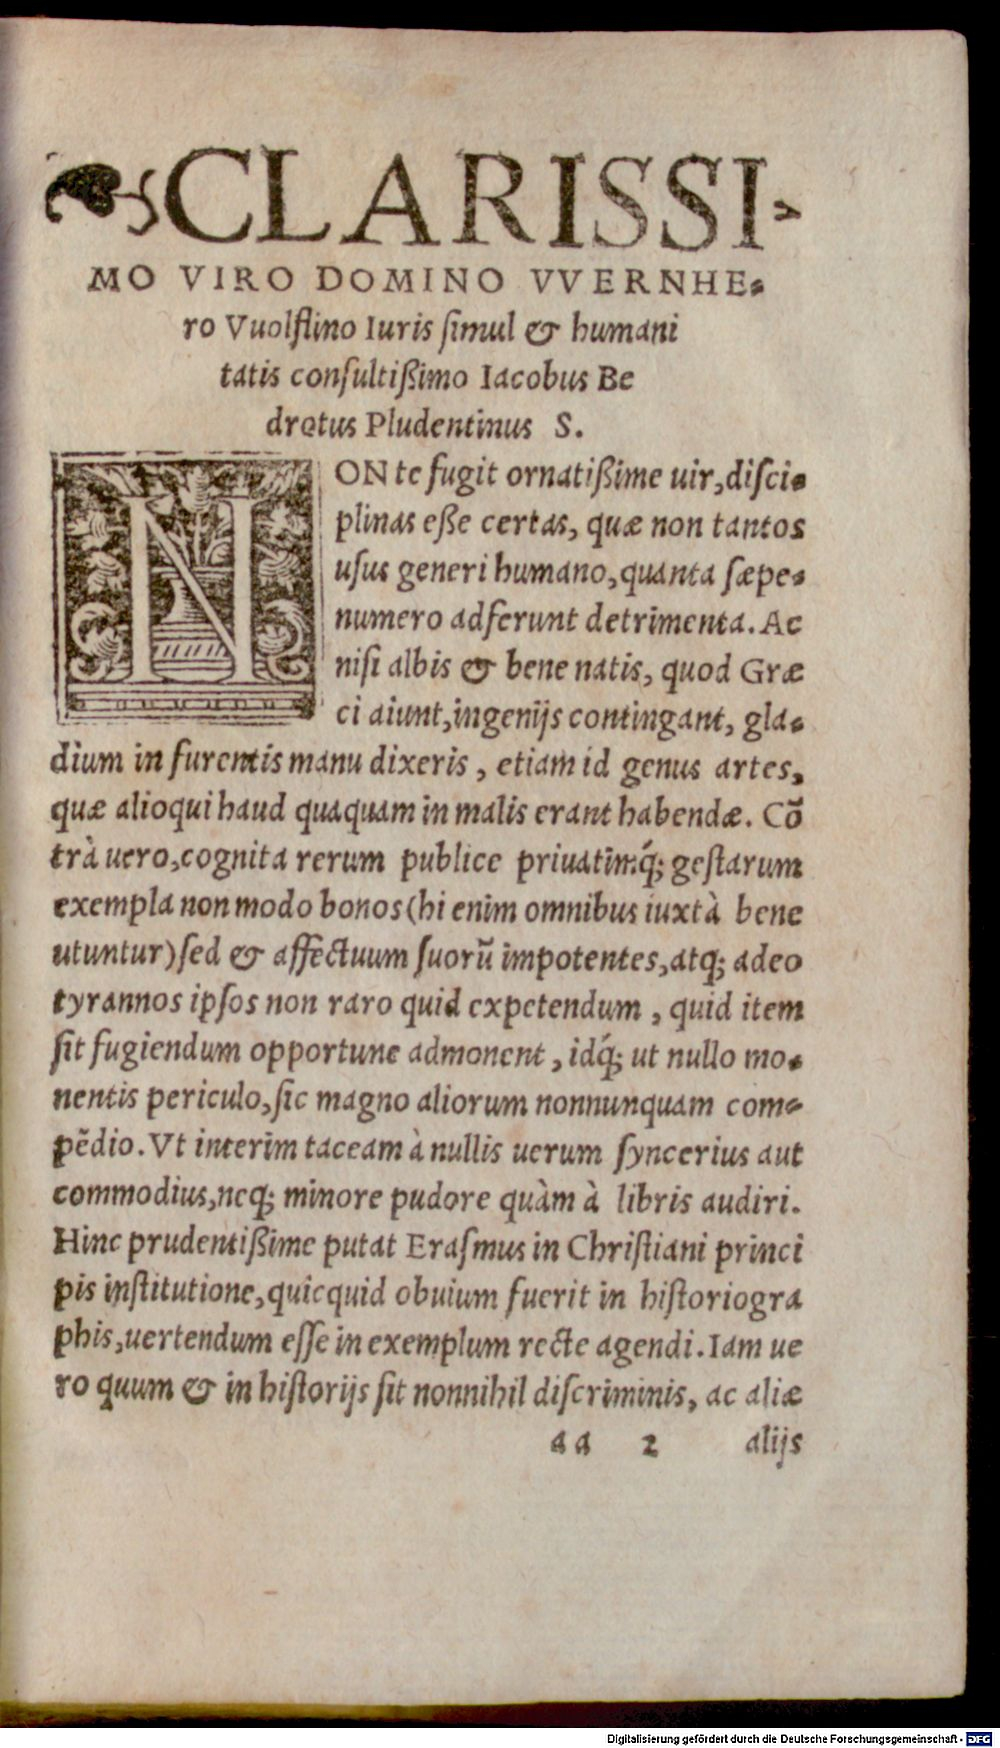 ❧ CLARISSI-
MO VIRO DOMINO VVERNHE-
ro Vuolflino Iuris simul & humani
tatis consultißimo Iacobus Be
drotus Pludentinus S.
NON te fugit ornatißime uir, disci-
plinas eße certas, quæ non tantos
usus generi humano, quanta sæpe-
numero adferunt detrimenta. Ac
nisi albis & bene natis, quod Græ
ci aiunt, ingenijs contingant, gla-
dium in furentis manu dixeris, etiam id genus artes,
quæ alioqui haud quaquam in malis erant habendæ. Cō
trà uero, cognita rerum publice priuatimq́; gestarum
exempla non modo bonos (hi enim omnibus iuxtà bene
utuntur) sed & affectuum suorū impotentes, atq; adeo
tyrannos ipsos non raro quid expetendum, quid item
sit fugiendum opportune admonent, idq́; ut nullo mo-
nentis periculo, sic magno aliorum nonnunquam com-
pēdio. Vt interim taceam à nullis uerum syncerius aut
commodius, neq; minore pudore quàm à libris audiri.
Hinc prudentißime putat Erasmus in Christiani princi
pis institutione, quicquid obuium fuerit in historiogra
phis, uertendum esse in exemplum recte agendi. Iam ue
ro quum & in historijs sit nonnihil discriminis, ac aliæ
aa 2 alijs
Digitalisierung gefördert durch die Deutsche Forschungsgemeinschaft - DFG